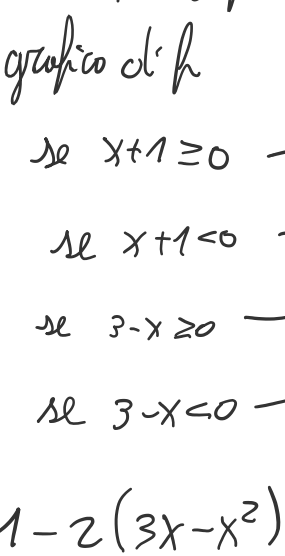 grafico di f
se x+1 ≥ 0 -
se x+1 < 0 -
se 3-x ≥ 0 —
se 3-x < 0 —
1-2(3x-x²)